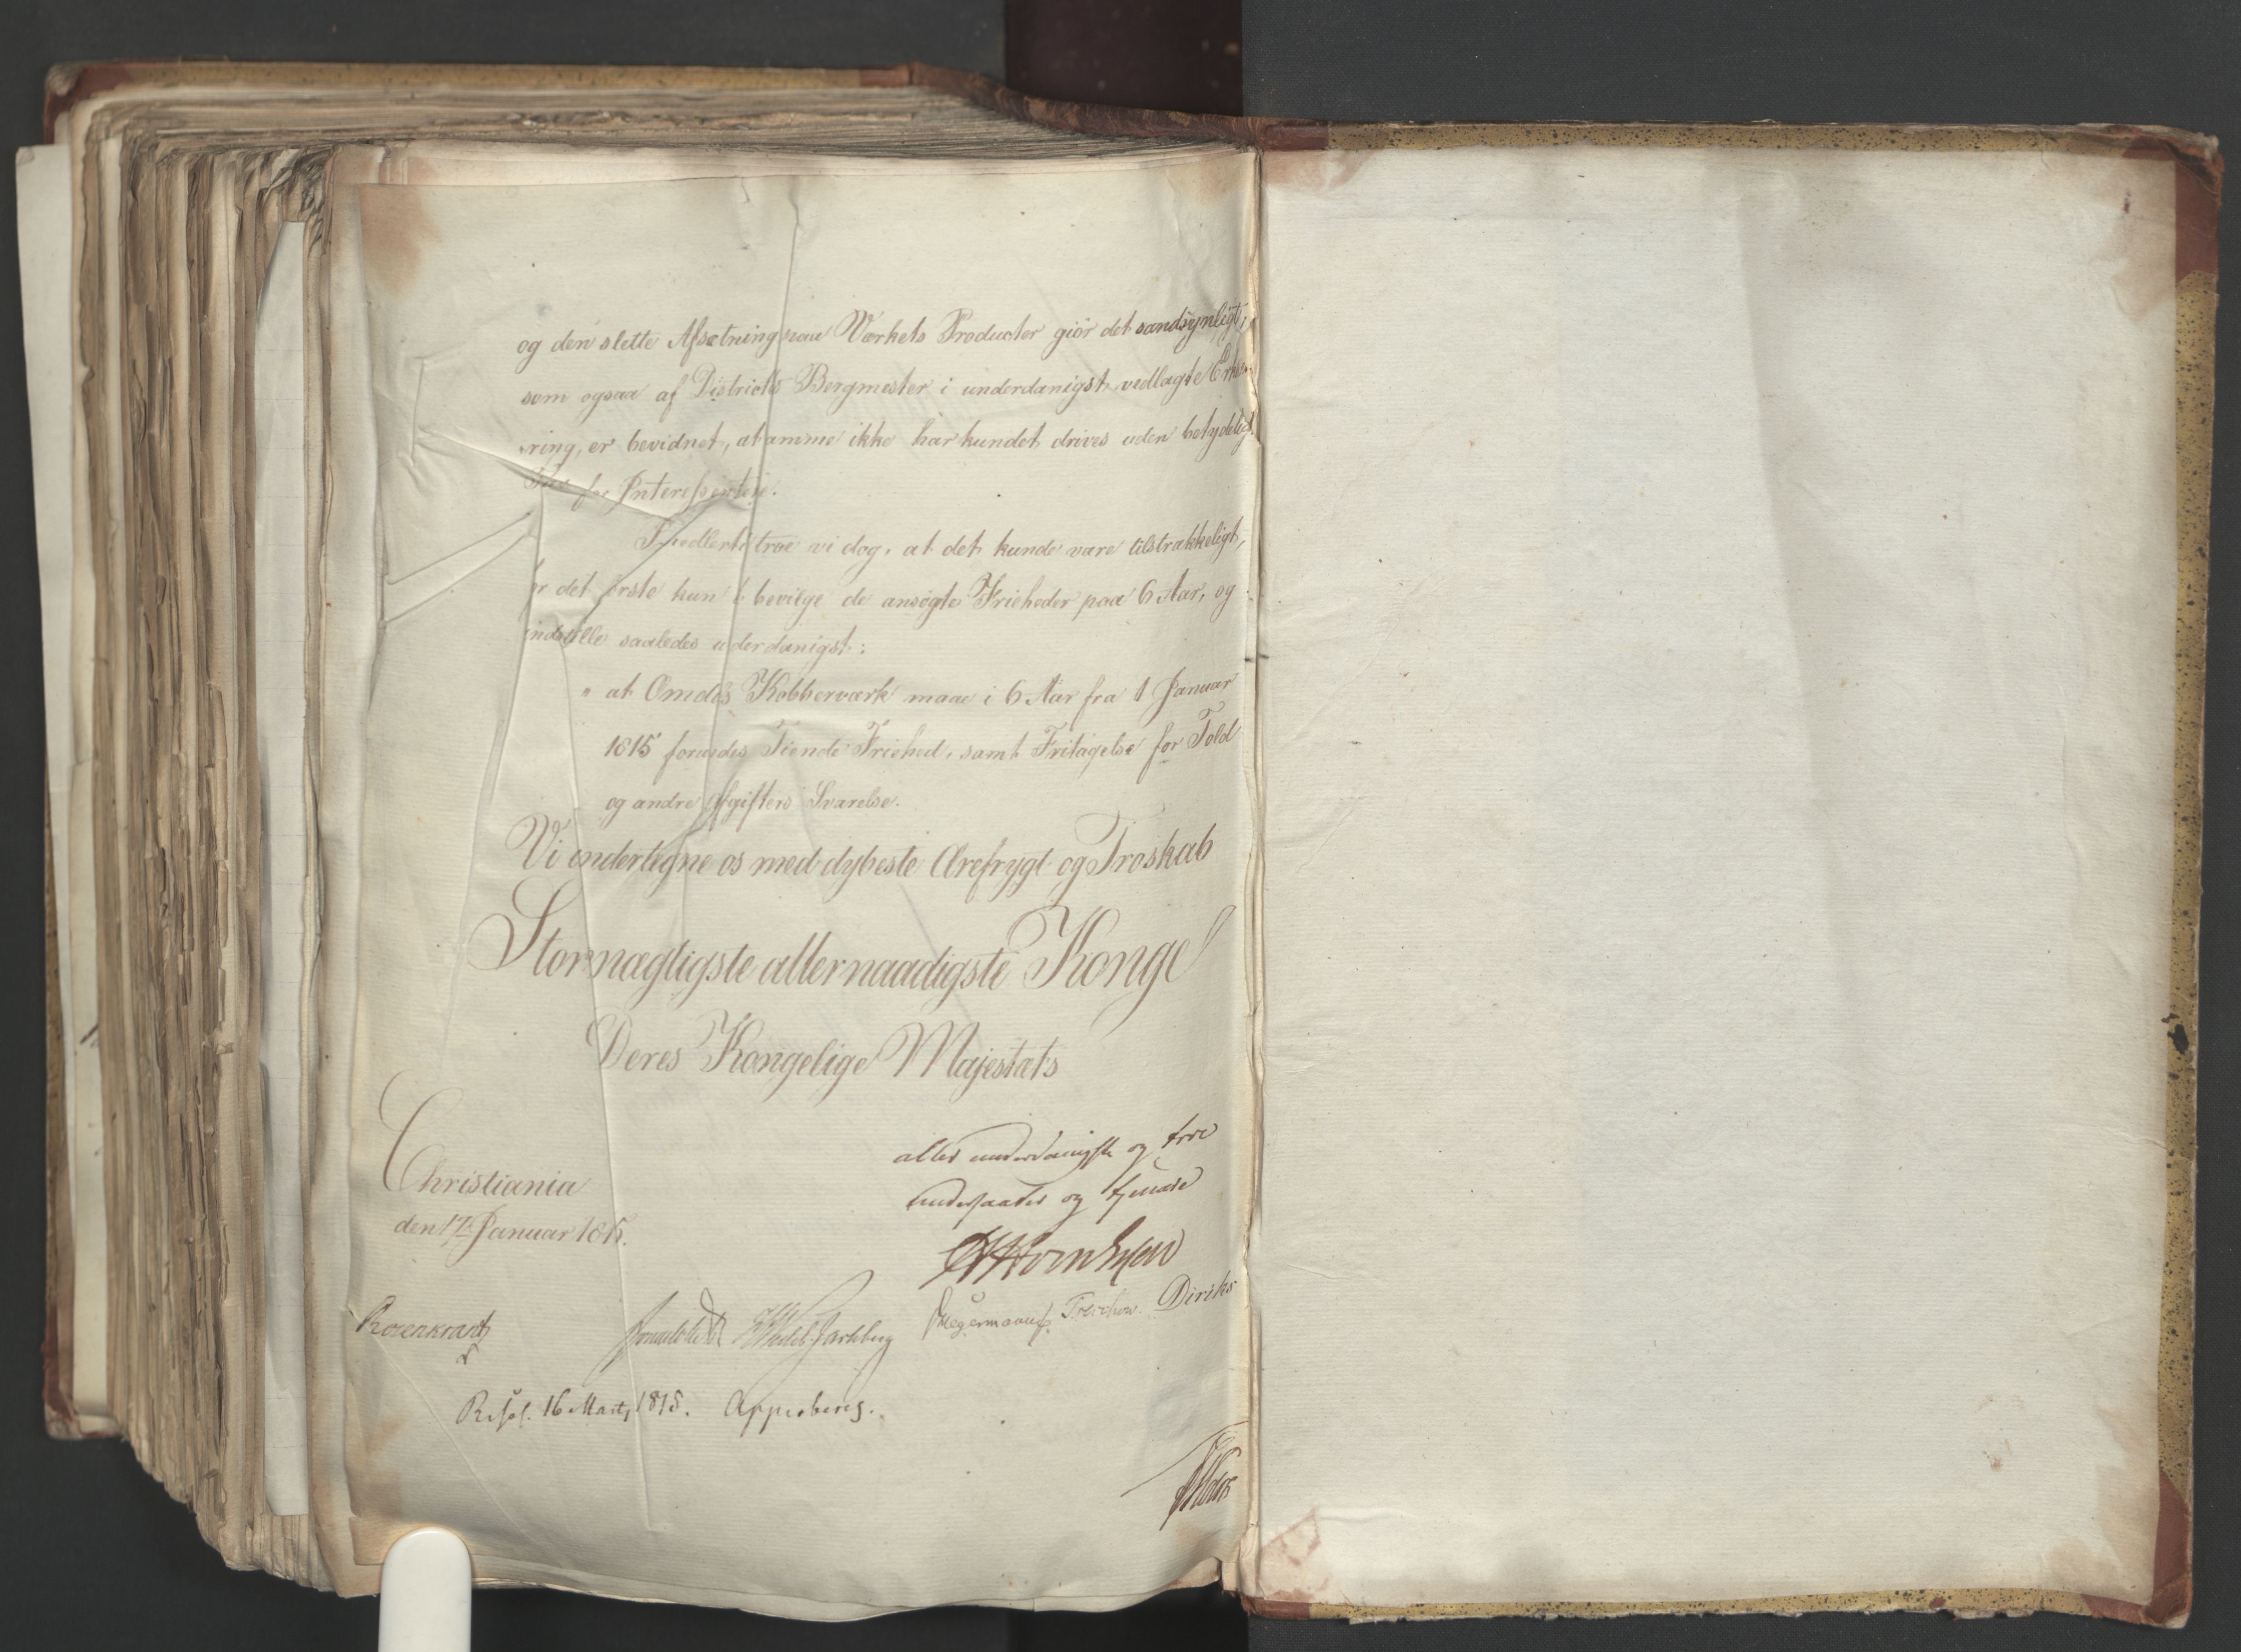 og den slette Afsætning paa Værkets Producter giør det sandsynligt,
som ogsaa af Districts Bergmester i underdanigst vedlagte Erklæ-
ring, er bevidnet, at samme ikke har kundet drives uden betydeligt
for Interessentere.
Imedlertid troe vi dog, at det kunde være tilstrækkeligt,
for det første kun at bevilge de ansøgte Friheder paa 6 Aar, og
indstille saaledes underdanigst:
" at Omdals Kobberværk maae i 6 Aar fra 1 Januar
1815 forundes Tiende Friehed, samt Fritagelse for Told
og andre Afgifters Svarelse.
Vi undertegne os med dybeste Ærefrygt og Troskab
Stormægtigste allernaadigste Konge
Deres Kongelige Majestæts
Christiania
den 17 Januar 1815.
aller underdanigste og troe
undersaatter og tjenere
Rosenkrantz
Sommerhielm Wedel Jarlsberg Hegermann Treschow Diriks
Resol. 16 Marts 1815. Approberes.